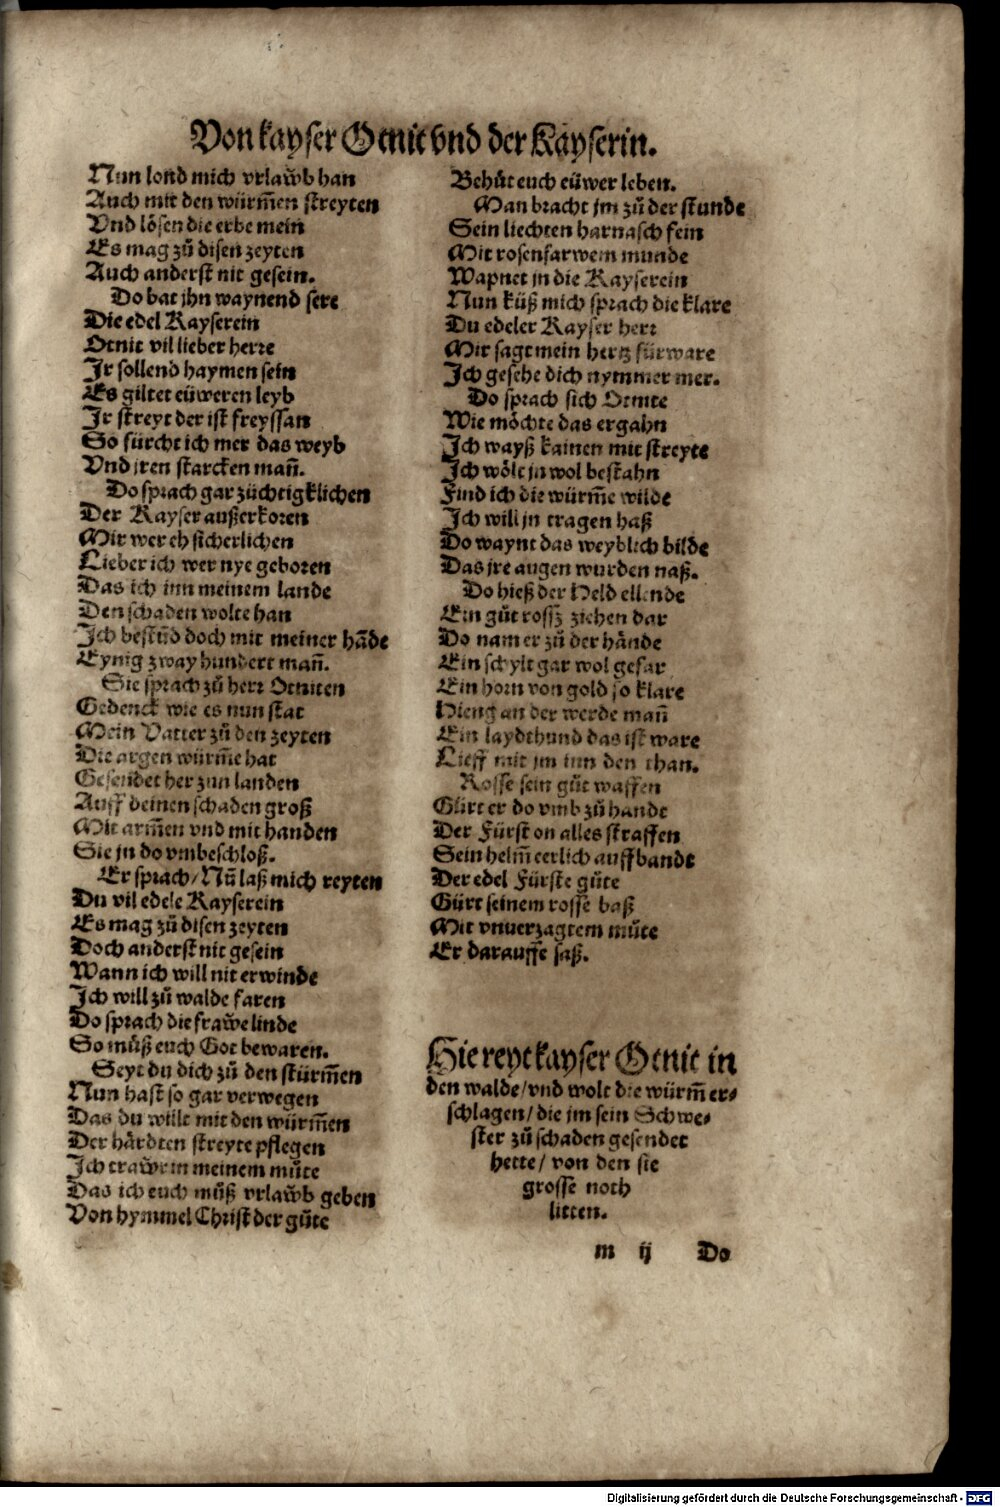 Von kayser Otnit vnd der Kayserin.
Nun lond mich vrlaůb han
Auch mit den würm̃en streyten
Vnd lösen die erbe mein
Es mag zů disen zeyten
Auch anderst nit gesein.
Do bat jhn waynend sere
Die edel Kayserein
Otnit vil lieber herre
Jr sollend haymen sein
Es giltet eüweren leyb
Jr streyt der ist freyssan
So fürcht ich mer das weyb
Vnd jren starcken mañ.
Do sprach gar züchtigklichen
Der Kayser außerkoren
Mir wer eh sicherlichen
Lieber ich wer nye geboren
Das ich inn meinem lande
Den schaden wolte han
Jch bestůd doch mit meiner hãde
Eynig zway hundert mañ.
Sie sprach zů herr Otniten
Gedenck wie es nun stat
Mein Vatter zů den zeyten
Die argen würm̃e hat
Gesendet her zun landen
Auff deinen schaden groß
Mit arm̃en vnd mit handen
Sie jn do vmbeschloß.
Er sprach / Nũ laß mich reyten
Du vil edele Kayserein
Es mag zů disen zeyten
Doch anderst nit gesein
Wann ich will nit erwinde
Jch will zů walde faren
Do sprach die fraẅe linde
So můß euch Got bewaren.
Seyt du dich zů den stürm̃en
Nun hast so gar verwegen
Das du wilt mit den würm̃en
Der härdten streyte pflegen
Jch traẅr in meinem můte
Das ich euch můß vrlaůb geben
Von hymmel Christ der gůte
Behüt euch eüwer leben.
Man bracht jm zů der stunde
Sein liechten harnasch fein
Mit rosenfarwem munde
Wapnet jn die Kayserein
Nun küß mich sprach die klare
Du edeler Kayser herr
Mir sagt mein hertz fürware
Jch gesehe dich nymmer mer.
Do sprach sich Otnite
Wie möchte das ergahn
Jch wayß kainen mit streyte
Jch wölt jn wol bestahn
Find ich die würm̃e wilde
Jch will jn tragen haß
Do waynt das weyblich bilde
Das jre augen wurden naß.
Do hieß der Held ellende
Ein gůt rossz ziehen dar
Do nam er zů der hände
Ein schylt gar wol gefar
Ein horn von gold so klare
Hieng an der werde mañ
Ein laydthund das ist ware
Lieff mit jm inn den than.
Rosse sein gůt waffen
Gürt er do vmb zů handt
Der Fürst on alles straffen
Sein helm̃ eerlich auffbandt
Der edel Fürste gůte
Gürt seinem rosse baß
Mit vnuerzagtem můte
Er darauffe saß.
Hie reyt kayser Otnit in
den walde / vnd wolt die würm̃ er⸗
schlagen / die jm sein Schwe⸗
ster zů schaden gesendet
hette / von den sie
grosse noth
litten.
m ij Do
Digitalisierung gefördert durch die Deutsche Forschungsgemeinschaft - DFG